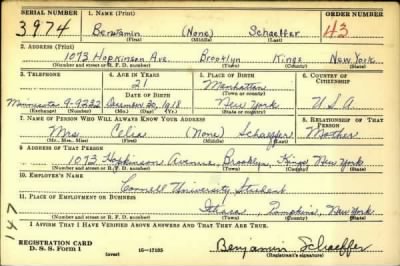 SERIAL NUMBER 1. NAME (Print) ORDER NUMBER
3974 Benjamin (None) Schaeffer 43
(First) (Middle) (Last)
2. ADDRESS (Print)
1073 Hopkinson Ave. Brooklyn Kings New York
(Number and street or R. F. D. number) (Town) (County) (State)
3. TELEPHONE 4. AGE IN YEARS 5. PLACE OF BIRTH 6. COUNTRY OF CITIZENSHIP
21 Manhattan
DATE OF BIRTH (Town or county)
9-9232 December 30, 1918 New York U.S.A.
(Exchange) (Number) (Mo.) (Day) (Yr.) (State or country)
7. NAME OF PERSON WHO WILL ALWAYS KNOW YOUR ADDRESS 8. RELATIONSHIP OF THAT PERSON
Mrs. Celia (None) Schaeffer Mother
(Mr., Mrs., Miss) (First) (Middle) (Last)
9. ADDRESS OF THAT PERSON
1073 Hopkinson Avenue, Brooklyn, Kings, New York
(Number and street or R. F. D. number) (Town) (County) (State)
10. EMPLOYER'S NAME
Cornell University Student
11. PLACE OF EMPLOYMENT OR BUSINESS
Ithaca, Tompkins, New York
(Number and street or R. F. D. number) (Town) (County) (State)
I AFFIRM THAT I HAVE VERIFIED ABOVE ANSWERS AND THAT THEY ARE TRUE.
147
REGISTRATION CARD
D. S. S. Form 1 (over) 16-17105 Benjamin Schaeffer
(Registrant's signature)